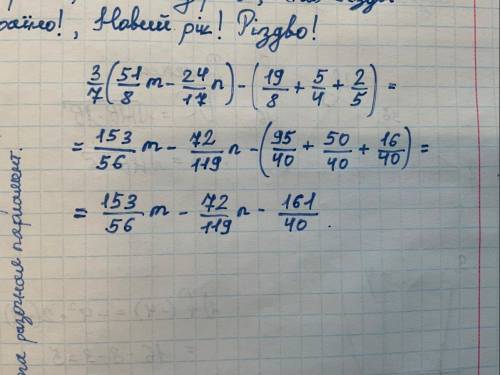 Новий рік! Різдво!
3/7(51/8 m - 24/17 n) - (19/8 + 5/4 + 2/5) =
= 153/56 m - 72/119 n - (95/40 + 50/40 + 16/40) =
= 153/56 m - 72/119 n - 161/40.